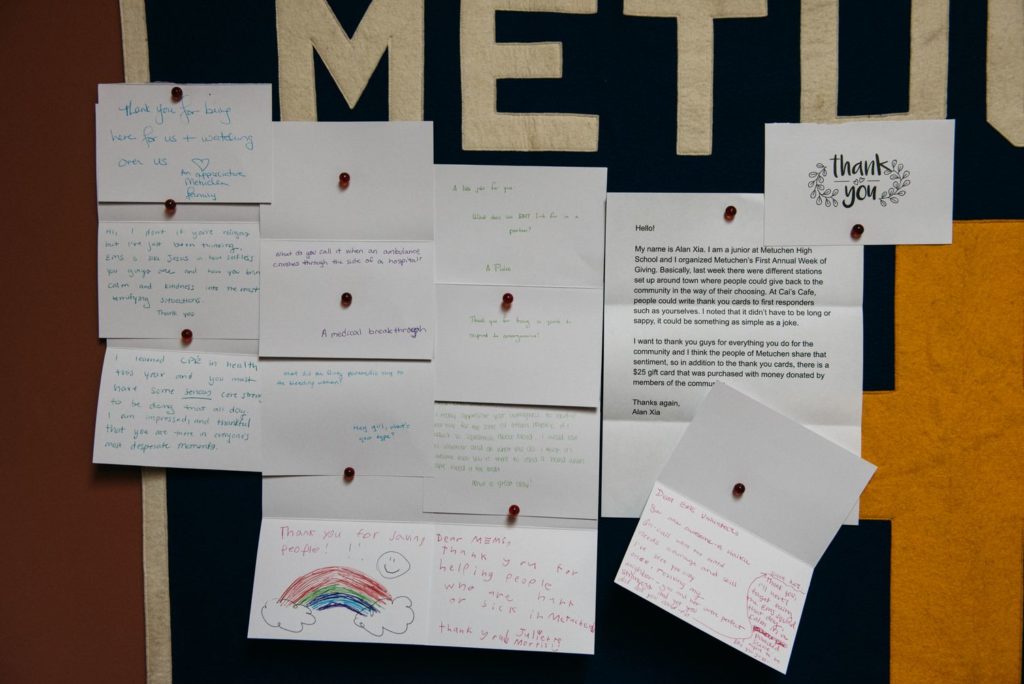 METU
Thank you for being
here for us + watching
over us ♡
An appreciative
Metuchen
family
Hi, I don't if you're religious
but I've just been thinking,
EMS is like Jesus in how selfless
you guys are and how you bring
calm and kindness into the most
terrifying situations.
Thank you
I learned CPR in health
this year and you must
have some serious core strength
to be doing that all day.
I am impressed, and thankful
that you are there in everyone's
most desperate moments.
What do you call it when an ambulance
crashes through the side of a hospital?
A medical breakthrough
What did the flirty paramedic say to
the bleeding woman?
Hey girl, what's
your type?
A joke for you:
What does an EMT look for in a
partner?
A Pulse
Thank you for being so quick to
respond to emergencies!
Have a great day!
Thank you for saving
people! !!
Dear MEMS,
Thank you for
helping people
who are hurt
or sick in Metuchen
thank you! Juliette
Morris!
thank
you
Hello!
My name is Alan Xia. I am a junior at Metuchen High
School and I organized Metuchen's First Annual Week of
Giving. Basically, last week there were different stations
set up around town where people could give back to the
community in the way of their choosing. At Cai's Cafe,
people could write thank you cards to first responders
such as yourselves. I noted that it didn't have to be long or
sappy, it could be something as simple as a joke.
I want to thank you guys for everything you do for the
community and I think the people of Metuchen share that
sentiment, so in addition to the thank you cards, there is a
$25 gift card that was purchased with money donated by
members of the commu
Thanks again,
Alan Xia
Dear EMS Volunteers
You are awesome
needs courage and skill
I've been